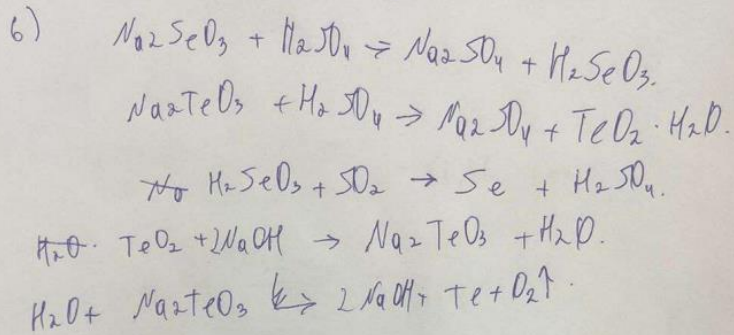 6) Na2SeO3 + H2SO4 = Na2SO4 + H2SeO3.
Na2TeO3 + H2SO4 → Na2SO4 + TeO2 · H2O.
H2SeO3 + SO2 → Se + H2SO4.
H2O · TeO2 + 2NaOH → Na2TeO3 + H2O.
H2O + Na2TeO3 → 2NaOH + Te + O2↑.